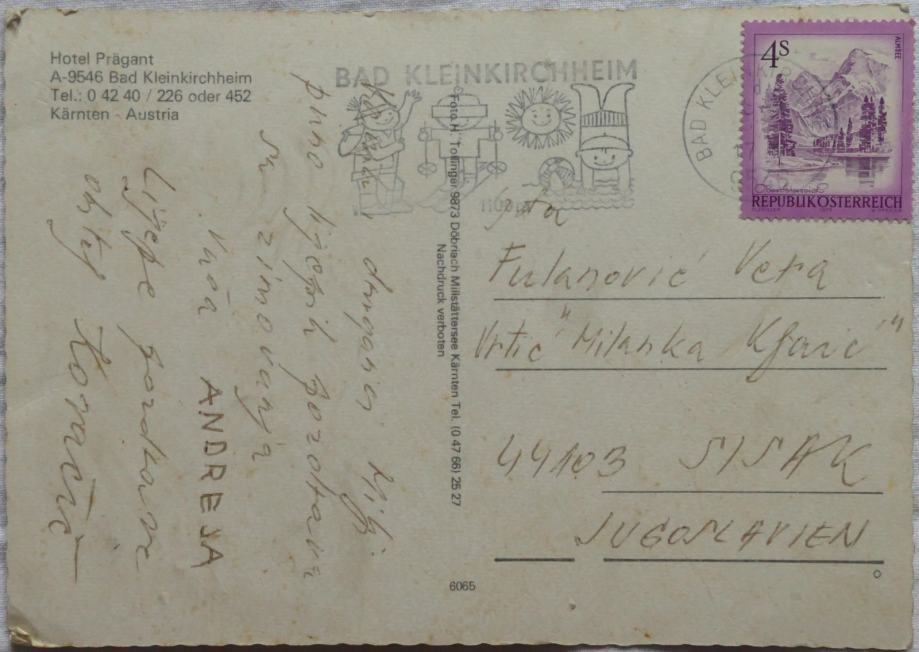 Hotel Prägant
A-9546 Bad Kleinkirchheim
Tel.: 0 42 40 / 226 oder 452
Kärnten - Austria
BAD KLEINKIRCHHEIM
BAD KLEINK
4S
ALMSEE
REPUBLIK ÖSTERREICH
dragoj
puno lijepih pozdrava
sa zimovanja
Vaša ANDREJA
Lijepe pozdrave
obitelj
Foto H. Tollinger 9873 Döbriach Millstättersee Kärnten Tel. (0 47 66) 25 27
Nachdruck verboten
Fulanović Vera
Vrtić "Milanka Kljaić"
44103 SISAK
JUGOSLAVIEN
6065